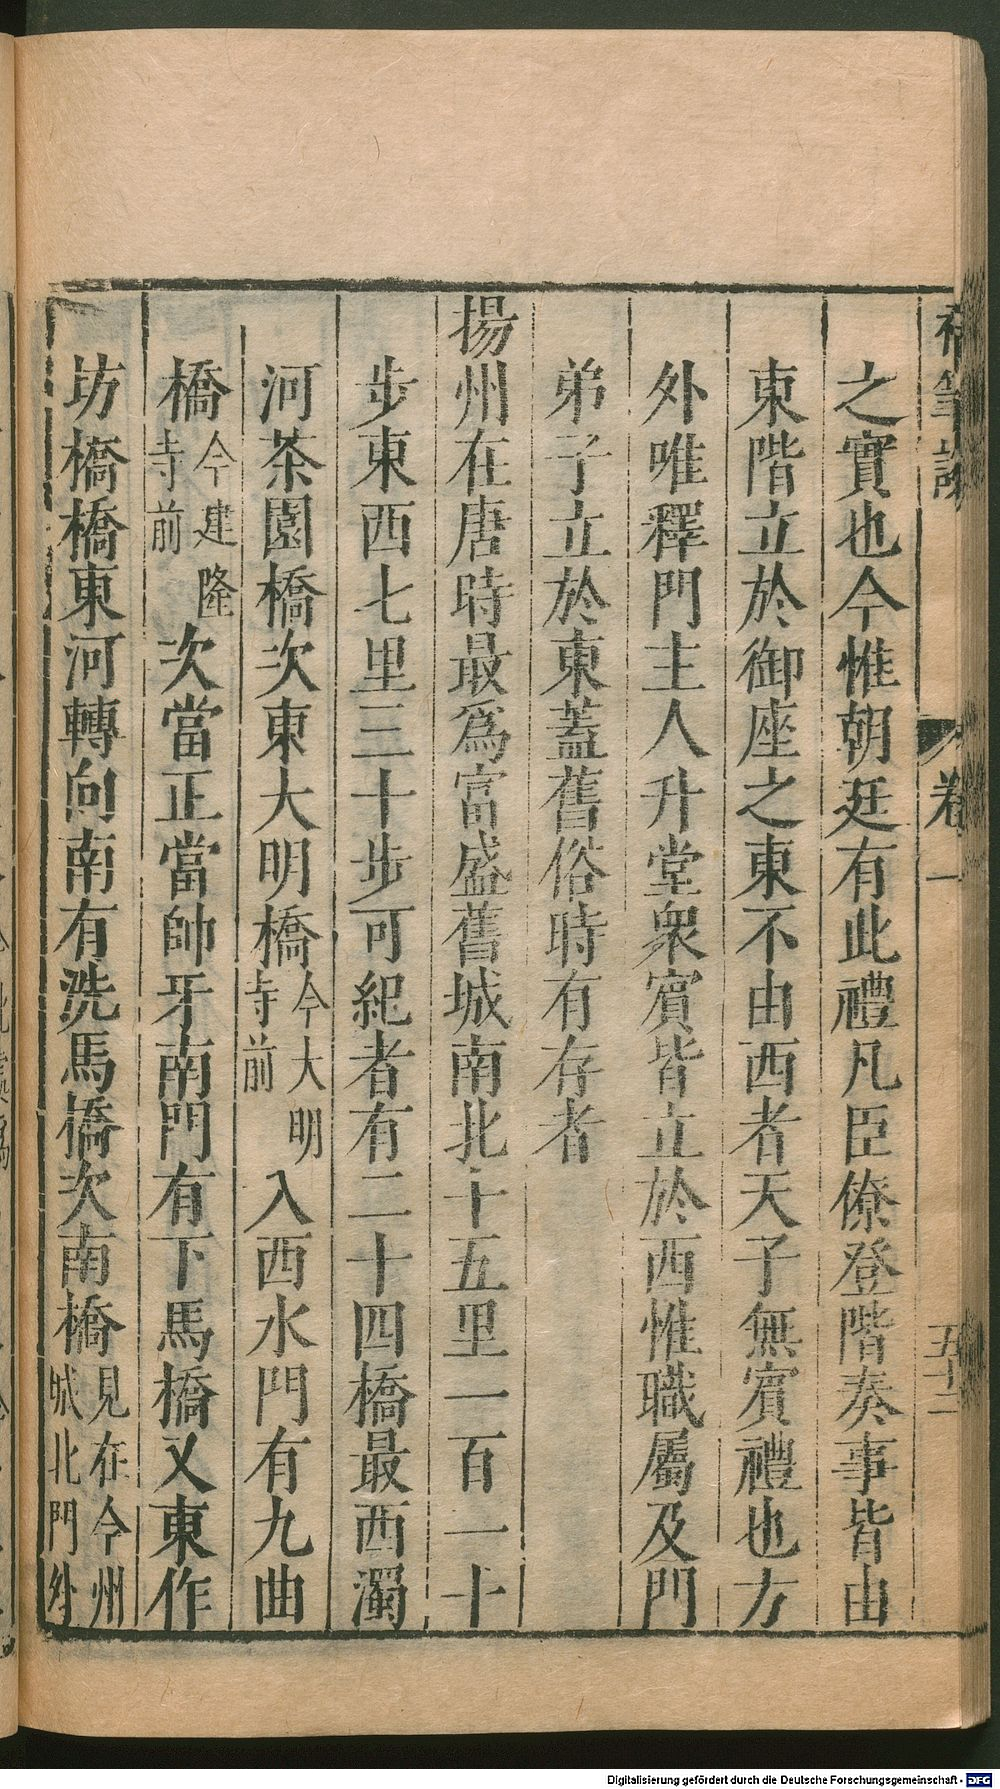 補筆談
卷一
五十二
之實也今惟朝廷有此禮凡臣僚登階奏事皆由
東階立於御座之東不由西者天子無賓禮也方
外唯釋門主人升堂衆賓皆立於西惟職屬及門
弟子立於東蓋舊俗時有存者
揚州在唐時最爲富盛舊城南北十五里一百一十
步東西七里三十步可紀者有二十四橋最西濁
河茶園橋次東大明橋今大明寺前入西水門有九曲
橋今建隆寺前次當正當帥牙南門有下馬橋又東作
坊橋橋東河轉向南有洗馬橋次南橋見在今州城北門外
Digitalisierung gefördert durch die Deutsche Forschungsgemeinschaft - DFG